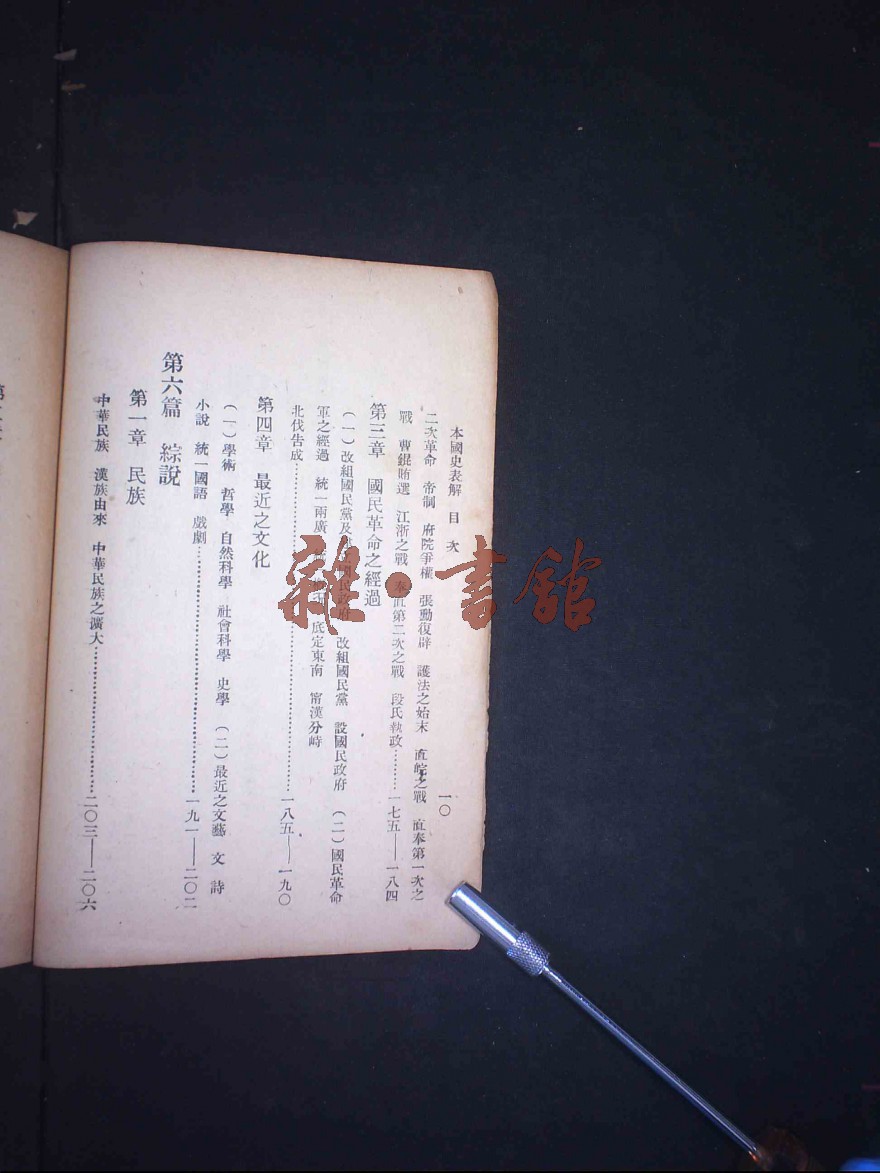 本國史表解 目次 一〇
二次革命 帝制 府院爭權 張勳復辟 護法之始末 直皖之戰 直奉第一次之
戰 曹錕賄選 江浙之戰 奉直第二次之戰 段氏執政………一七五——一八四
第三章 國民革命之經過
(一)改組國民黨及 國民政府 改組國民黨 設國民政府 (二)國民革命
軍之經過 統一兩廣 底定東南 甯漢分峙
北伐告成………一八五——一九〇
第四章 最近之文化
(一)學術 哲學 自然科學 社會科學 史學 (二)最近之文藝 文 詩
小說 統一國語 戲劇………一九一——二〇二
第六篇 綜說
第一章 民族
中華民族 漢族由來 中華民族之濱大………二〇三——二〇六
雜·書館